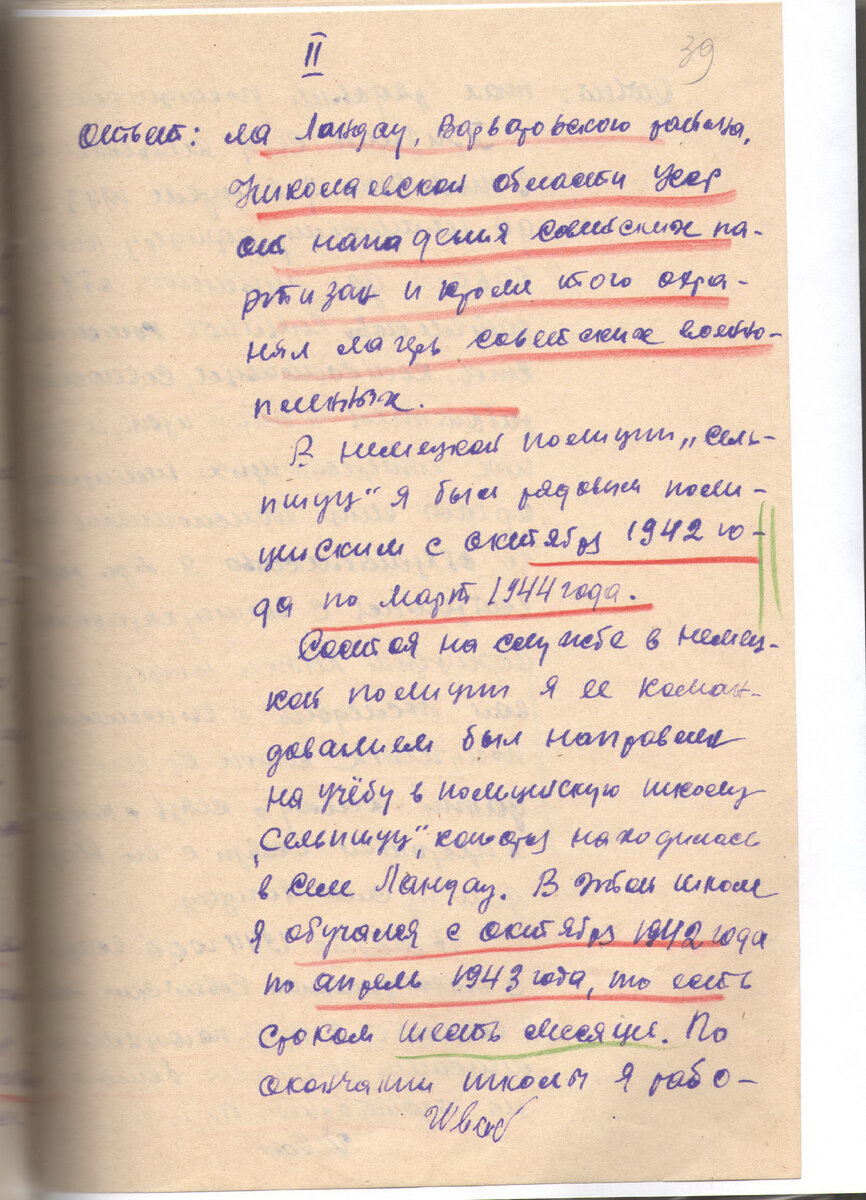 II
39
ответ: ла Ландау, Варваровского района,
Николаевской области УССР
от нападения советских па-
ртизан и кроме того охра-
нял лагерь советских военно-
пленных.
В немецкой полиции „Сель-
пшуц" я был рядовым поли-
цейским с октября 1942 го-
да по март 1944 года.
Состоя на службе в немец-
кой полиции я ее коман-
дованием был направлен
на учёбу в полицейскую школу
„Сельпшуц", которая находилась
в селе Ландау. В этой школе
я обучался с октября 1942 года
по апрель 1943 года, то есть
сроком шесть месяцев. По
окончании школы я рабо-
Шваб